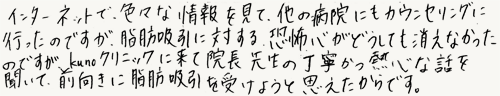 インターネットで、色々な情報を見て、他の病院にもカウンセリングに
行ったのですが、脂肪吸引に対する、恐怖心がどうしても消えなかった
のですが、kunoクリニックに来て院長先生の丁寧かつ熱心な話を
聞いて、前向きに脂肪吸引を受けようと思えたからです。